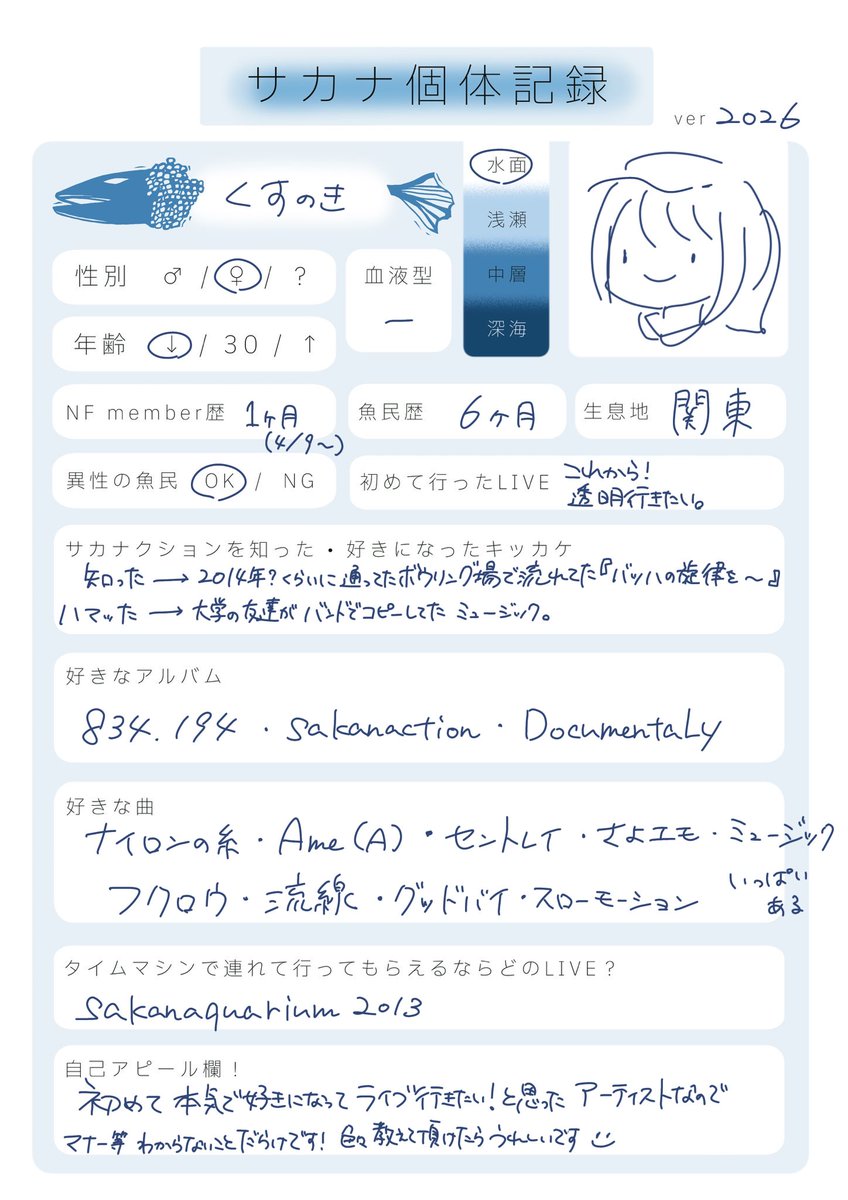 サカナ個体記録
ver 2026
くすのき
水面
浅瀬
中層
深海
性別 ♂ / ♀ / ?
血液型
ー
年齢 ↓ / 30 / ↑
NF member歴 1ヶ月
(4/9〜)
魚民歴 6ヶ月
生息地 関東
異性の魚民 OK / NG
初めて行ったLIVE これから!
透明行きたい。
サカナクションを知った・好きになったキッカケ
知った → 2014年?くらいに通ってたボウリング場で流れてた『バッハの旋律を〜』
ハマった → 大学の友達がバンドでコピーしてた ミュージック。
好きなアルバム
834.194 ・ sakanaction ・ DocumentaLy
好きな曲
ナイロンの糸・Ame(A)・セントレイ・さよエモ・ミュージック
フクロウ・流線・グッドバイ・スローモーション
いっぱい
ある
タイムマシンで連れて行ってもらえるならどのLIVE?
sakanaquarium 2013
自己アピール欄!
初めて 本気で好きになって ライブ行きたい!と思った アーティストなので
マナー等 わからないことだらけです! 色々教えて頂けたらうれしいです